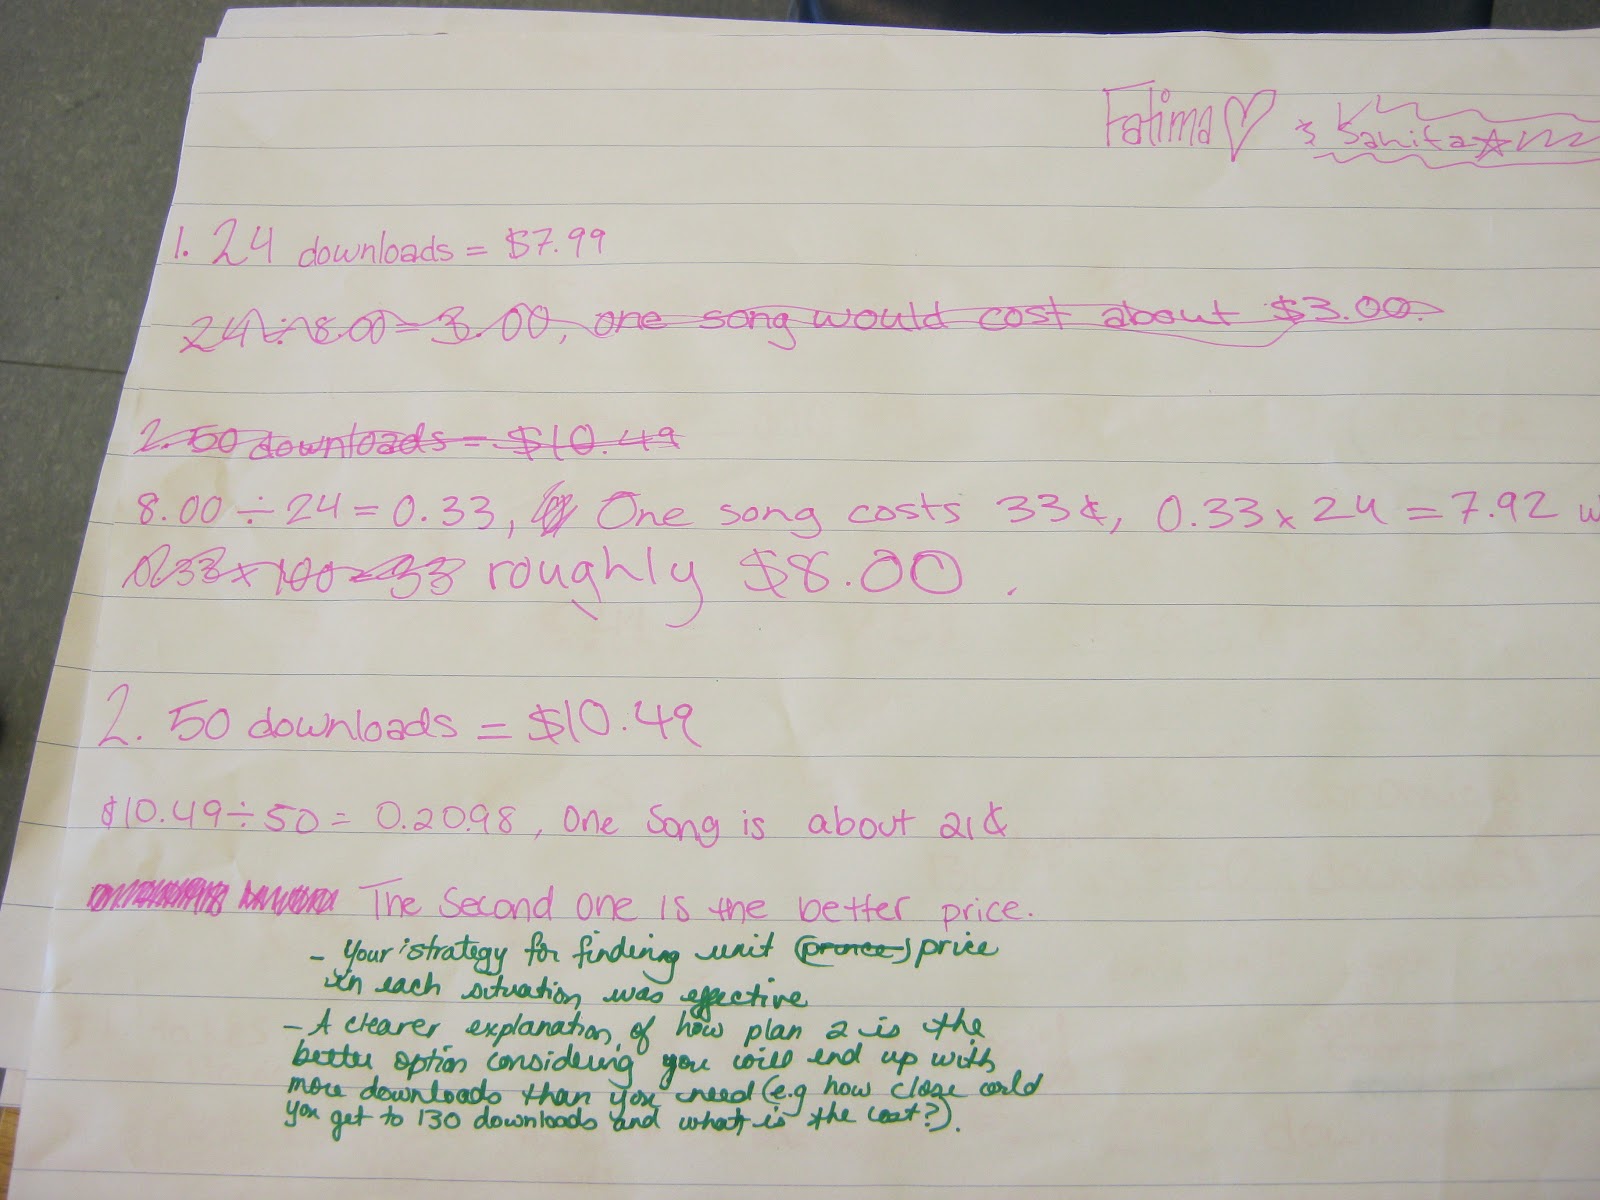 Fatima ♡ & Sanita ☆
1. 24 downloads = $7.99
24 ÷ 8.00 = 3.00, one song would cost about $3.00.
2. 50 downloads = $10.49
8.00 ÷ 24 = 0.33, One song costs 33¢, 0.33 x 24 = 7.92 w
0.33 x 100 = 33 roughly $8.00.
2. 50 downloads = $10.49
$10.49 ÷ 50 = 0.2098, One song is about 21¢
The second one is the better price.
- Your strategy for finding unit price
in each situation was effective
- A clearer explanation of how plan 2 is the
better option considering you will end up with
more downloads than you need (e.g how close could
you get to 130 downloads and what is the cost?).